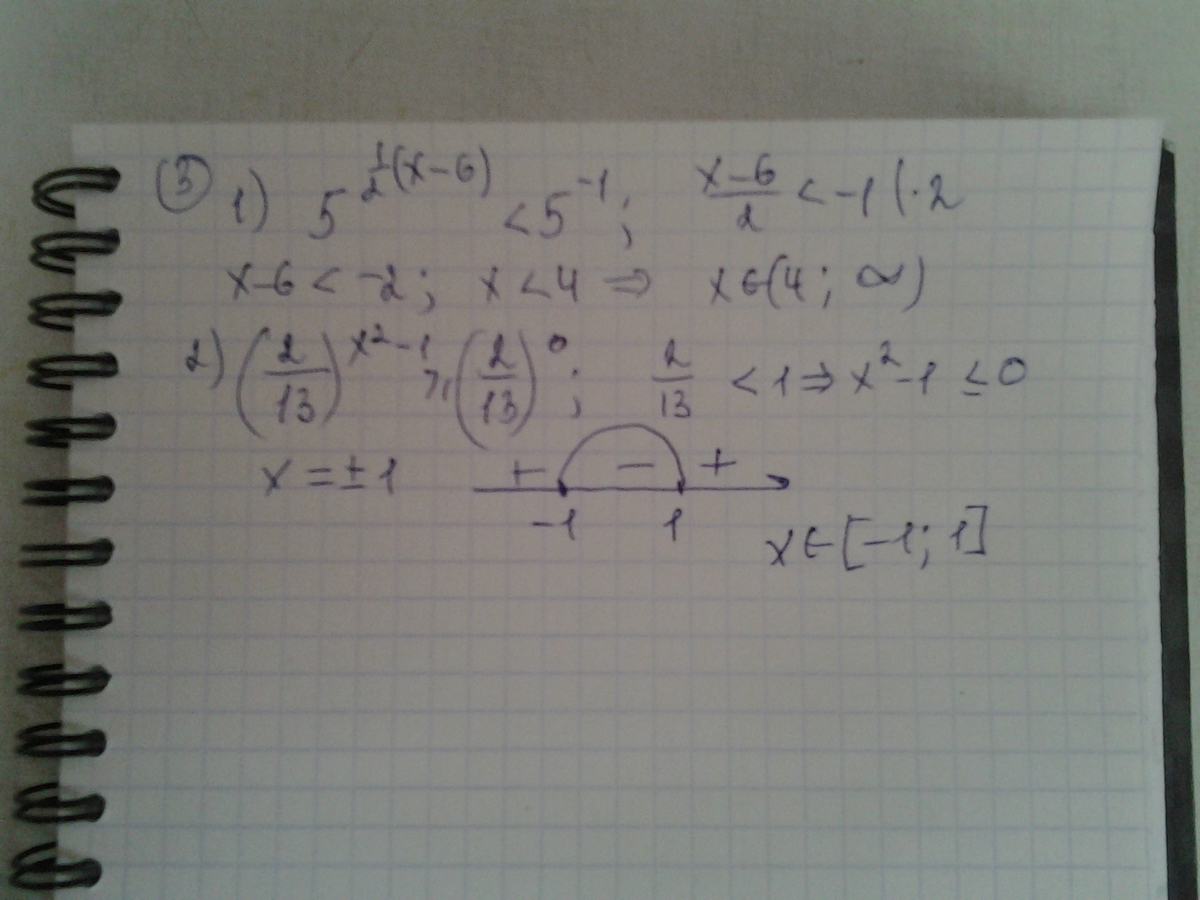 ③ 1) 5^{\frac{1}{2}(x-6)} < 5^{-1}; \frac{x-6}{2} < -1 | · 2
x-6 < -2; x < 4 ⇒ x ∈ (4; ∞)
2) (\frac{2}{13})^{x^2-1} ⩾ (\frac{2}{13})^0; \frac{2}{13} < 1 ⇒ x^2-1 ≤ 0
x = ±1 + − +
-1 1
x ∈ [-1; 1]